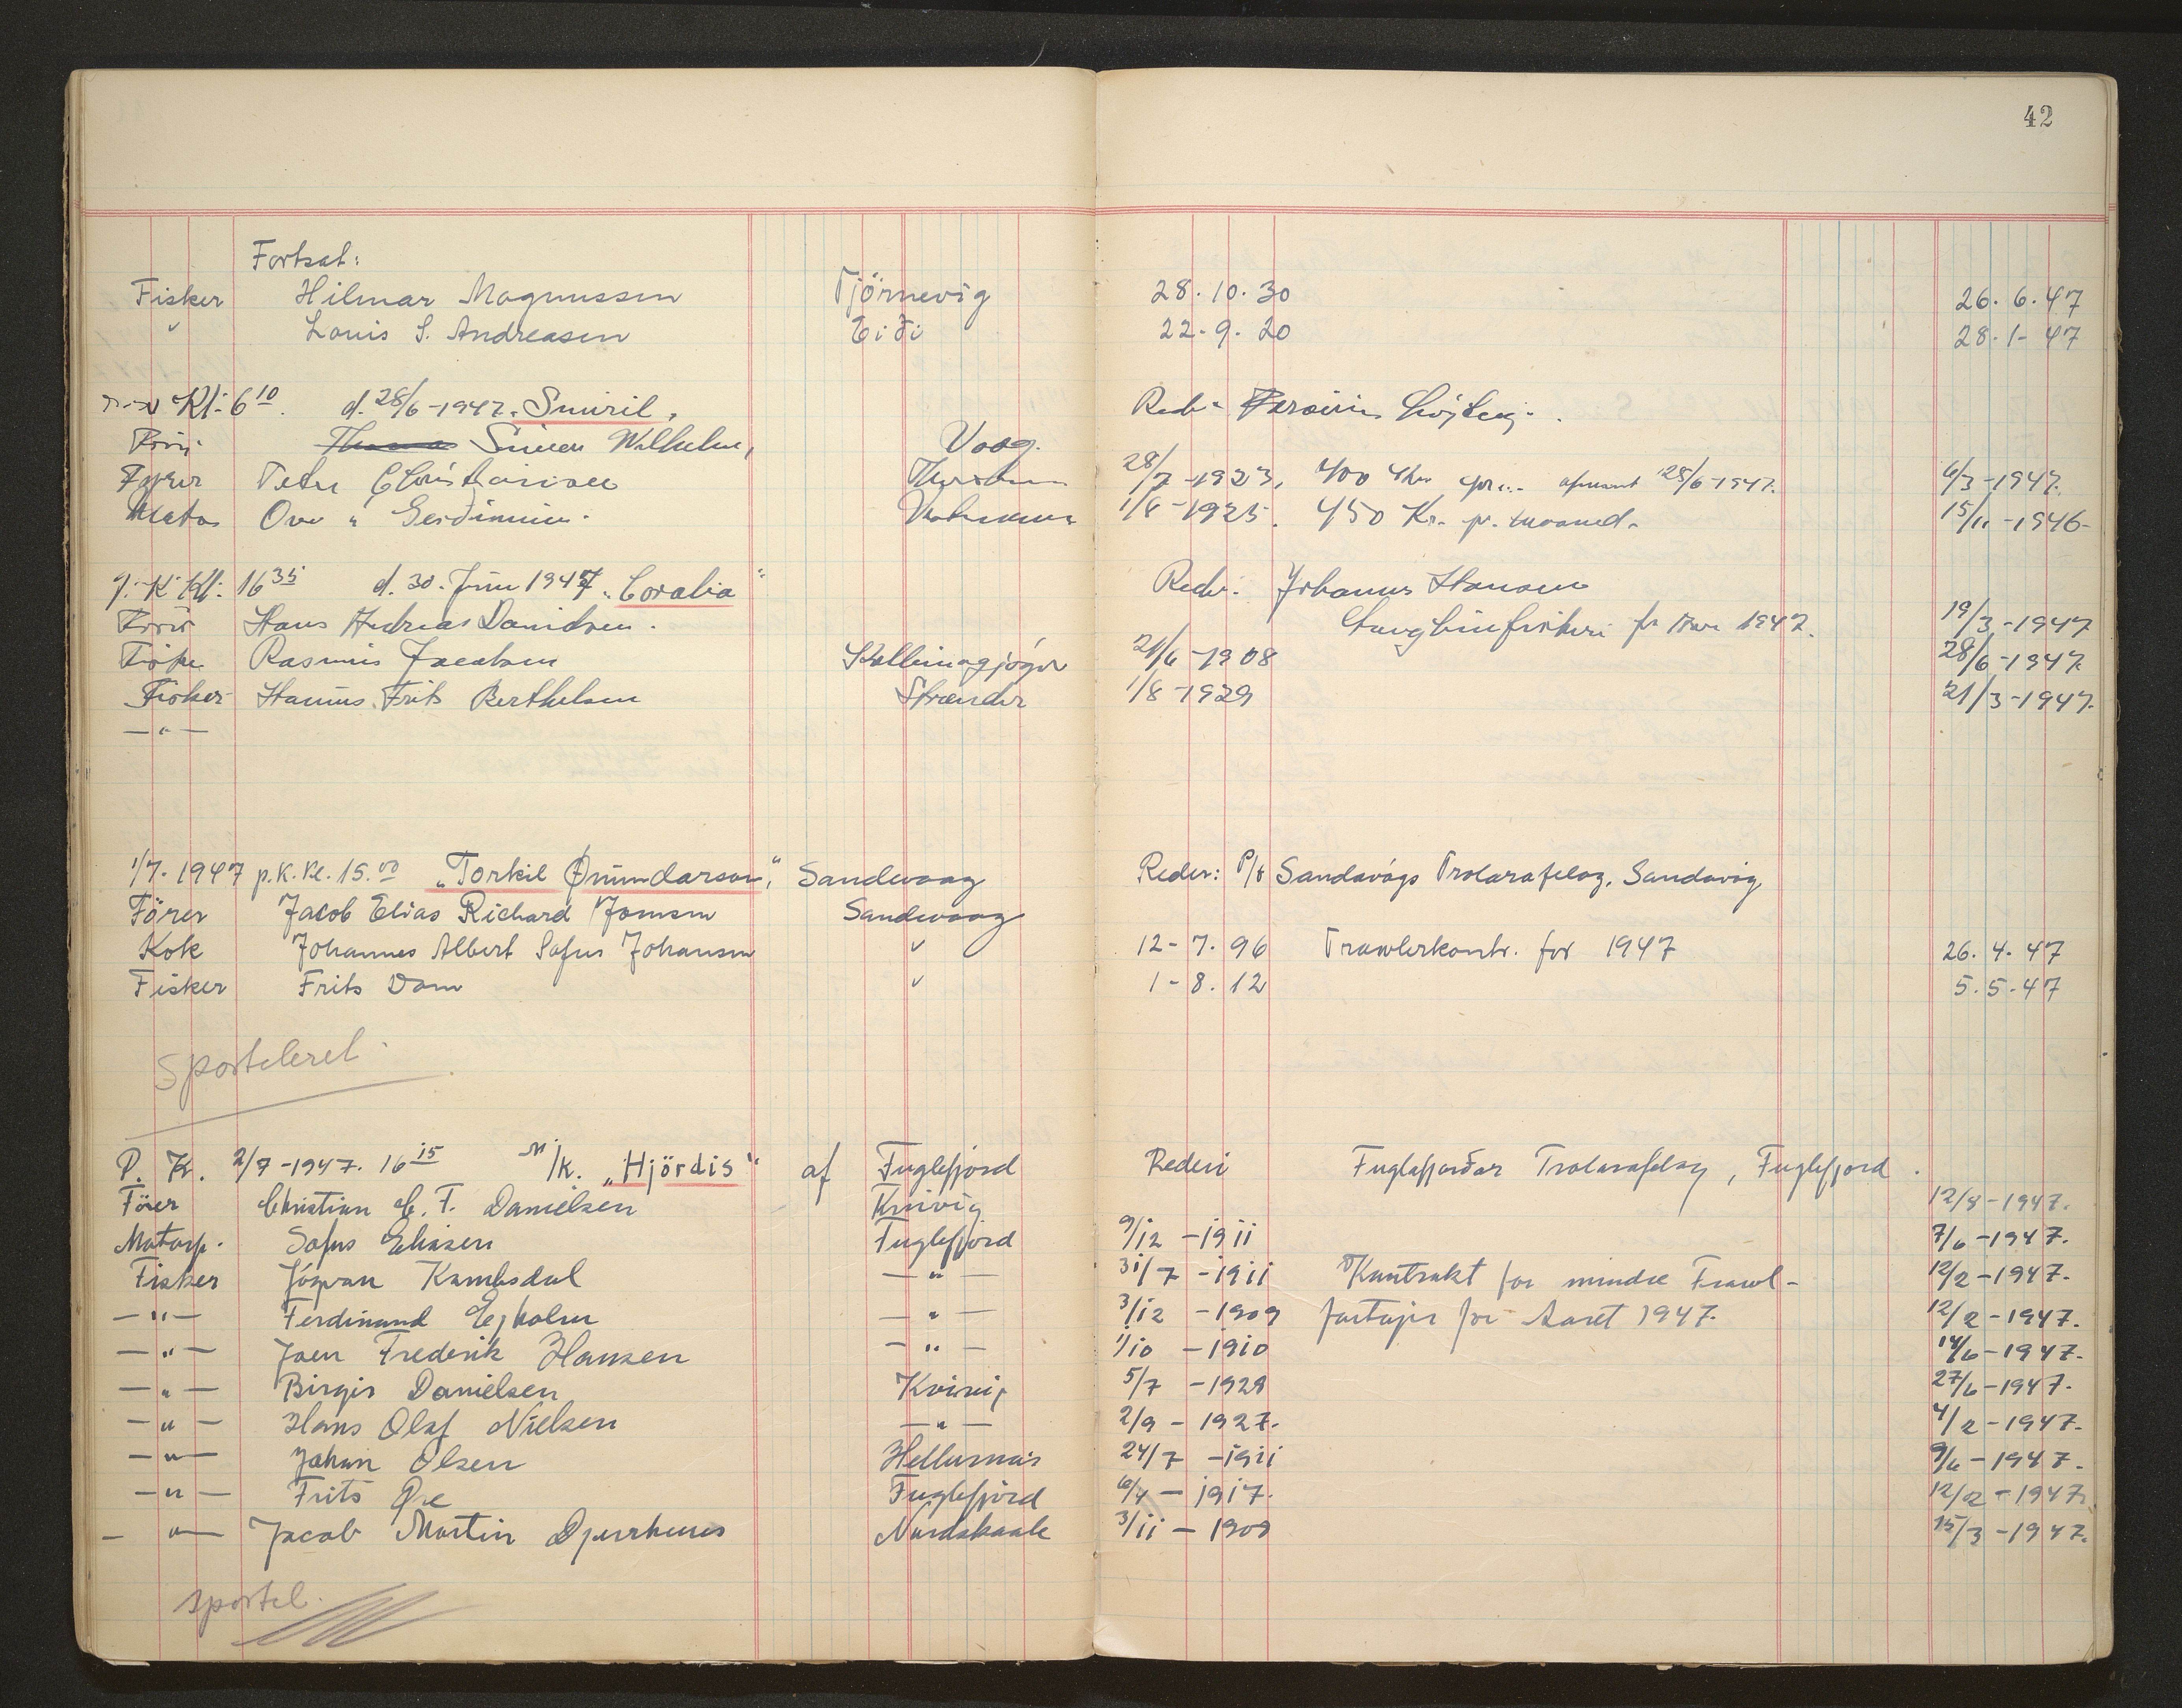 42
Fortsat:
Fisker Hilmar Magnussen Tjörnevig 28.10.30 26.6.47
" Louis S. Andreasen Eiði 22-9.20 28.1-47
Kl. 6 10. d. 28/6-1947. Smiril,
Simon Wilhelm, Vaag.
Fyrer Peter 28/7-1923, 400 28/6-1947. 6/3-1947.
Matos Ove 1/8-1925. 450 Kr. pr. maaned. 15/11-1946-
Kl. 16 35 d. 30. Juni 1947 "Coralia" Reder: Johannes Hansen
Hans Andreas Danielsen. 1947. 19/3-1947
Rasmus Jacobsen 21/6-1908 28/6-1947.
Fisker Hanus Frits Berthelsen Strender 1/8-1929 21/3-1947.
— " —
1/7-1947 p.K. Kl. 15.00 "Torkil Ønundarson", Sandevaag Reder: P/f Sandavágs Trolarafelag, Sandavág
Förer Jacob Elias Richard Joensen Sandevaag
Kok Johannes Albert Sofus Johansen " 12-7.96 Trawlerkontr. for 1947 26.4.47
Fisker Frits Dam " 1-8.12 5.5.47
Sporteleret.
P. K. 2/7-1947. 16 15 M/K. "Hjördis" af Fuglefjord Rederi Fuglafjarðar Trolarafelag, Fuglefjord.
Förer Christian C. F. Danielsen Kvivig 12/8-1947.
Matosp. Sofus Eliasen Fuglefjord 9/12-1911 7/6-1947.
Fisker Jógvan Kambsdal — " — 31/7-1911 Kontrakt for mindre Trawl- 12/2-1947.
— " — Ferdinand Ejholm — " — 3/12-1909 fartøjer for Aaret 1947. 12/2-1947.
— " — Joen Frederik Hansen — " — 1/10-1910 14/6-1947.
— " — Birgir Danielsen Kvivig 5/7-1929 27/6-1947.
— " — Hans Olaf Nielsen — " — 2/9-1927. 4/2-1947.
— " — Johan Olsen Hellurnar 24/7-1911 9/6-1947.
— " — Frits Øre Fuglefjörd 6/4-1917. 12/2-1947.
— " — Jacob Martin Djurrhuus Nordskaale 3/11-1909 15/3-1947.
sportel.